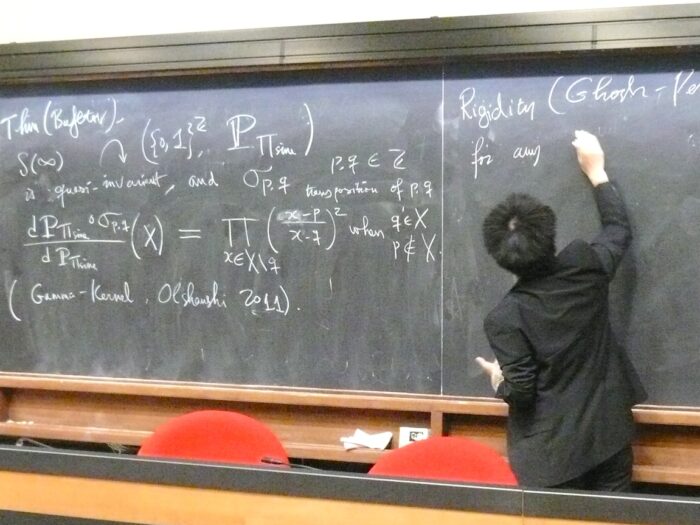 Thm (Bufetov).
S(∞) ↷ ({0,1}^ℤ, ℙ_{Π_sine})
is quasi-invariant, and σ_{p,q} p,q ∈ ℤ transposition of p,q
dℙ_{Π_sine}∘σ_{p,q} / dℙ_{Π_sine} (X) = ∏_{x∈X\q} ((x-p)/(x-q))² when q∈X p∉X.
(Gamma-Kernel, Olshanski 2011).
Rigidity (Ghosh -
for any